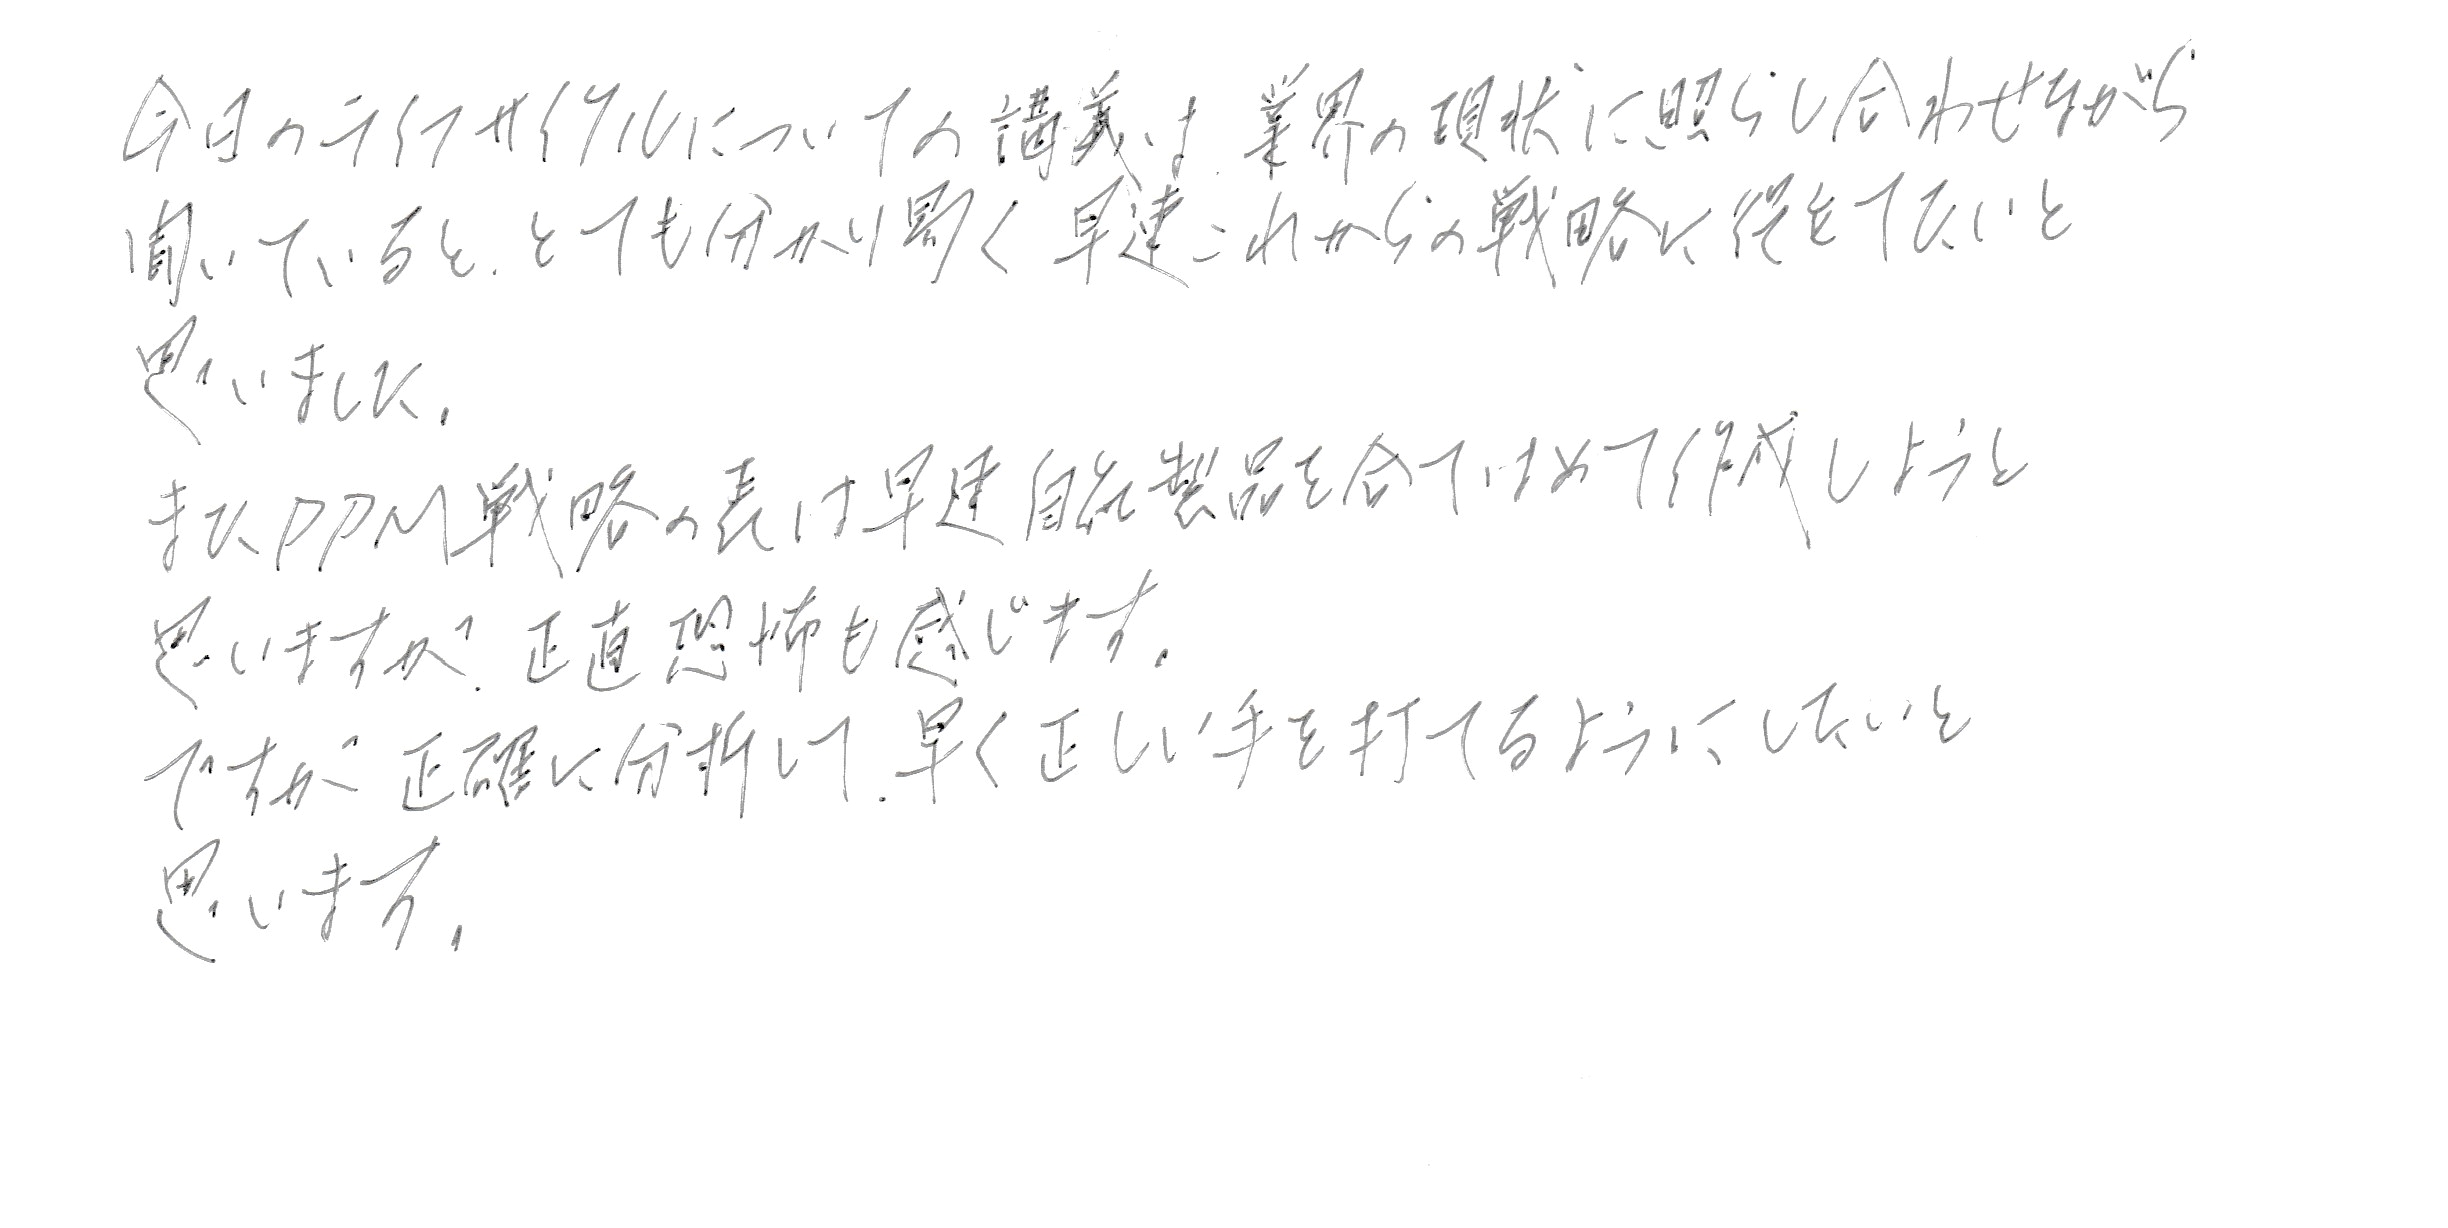 今日のライフサイクルについての講義は、業界の現状に照らし合わせながら
聞いていると、とても分かり易く早速これからの戦略に役立てたいと
思いました。
またPPM戦略の表は早速自社製品を合てはめて作成しようと
思いますが、正直恐怖も感じます。
ですが正確に分析して、早く正しい手を打てるようにしたいと
思います。